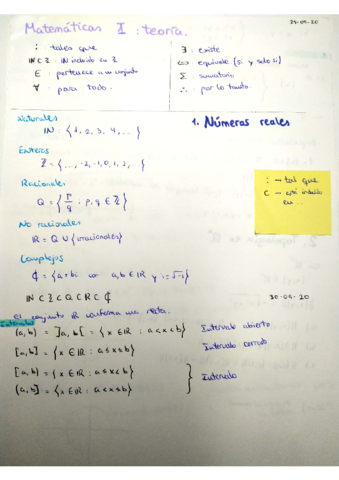 29-09-20
Matemáticas I : teoría.
: tales que
ℕ ⊂ ℤ : ℕ incluido en ℤ
∈ : pertenece a un conjunto
∀ : para todo.
∃ : existe
⇔ equivale (si y solo si)
Σ sumatorio
∴ : por lo tanto
1. Números reales
Naturales
ℕ : {1, 2, 3, 4, ...}
Enteros
ℤ = {..., -2, -1, 0, 1, 2, ...}
Racionales
Q = {p/q : p, q ∈ ℤ}
: → tal que
⊂ → está incluido
en ...
No racionales
ℝ = Q ∪ {irracionales}
Complejos
₵ = {a+bi con a, b ∈ ℝ y i = √-1}
ℕ ⊂ ℤ ⊂ Q ⊂ ℝ ⊂ ₵
30-09-20
El conjunto ℝ conforma una recta.
Intervalos
(a, b) = ]a, b[ = {x ∈ ℝ : a < x < b} Intervalo abierto
[a, b] = {x ∈ ℝ : a ≤ x ≤ b} Intervalo cerrado
[a, b) = {x ∈ ℝ : a ≤ x < b}
(a, b] = {x ∈ ℝ : a < x ≤ b} } Intervalo